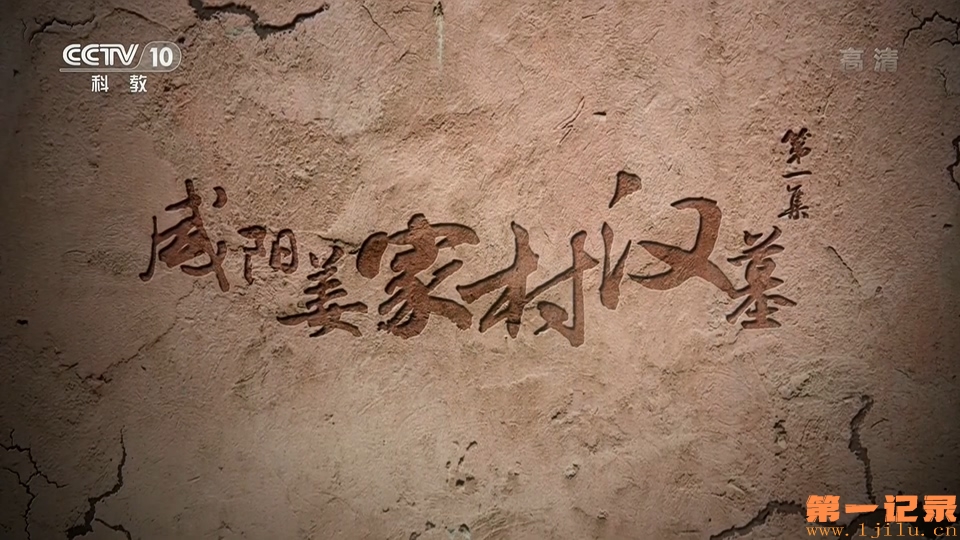 CCTV 10
科教
高清
第一集
咸阳姜家村汉墓
第一记录
www.1jilu.cn